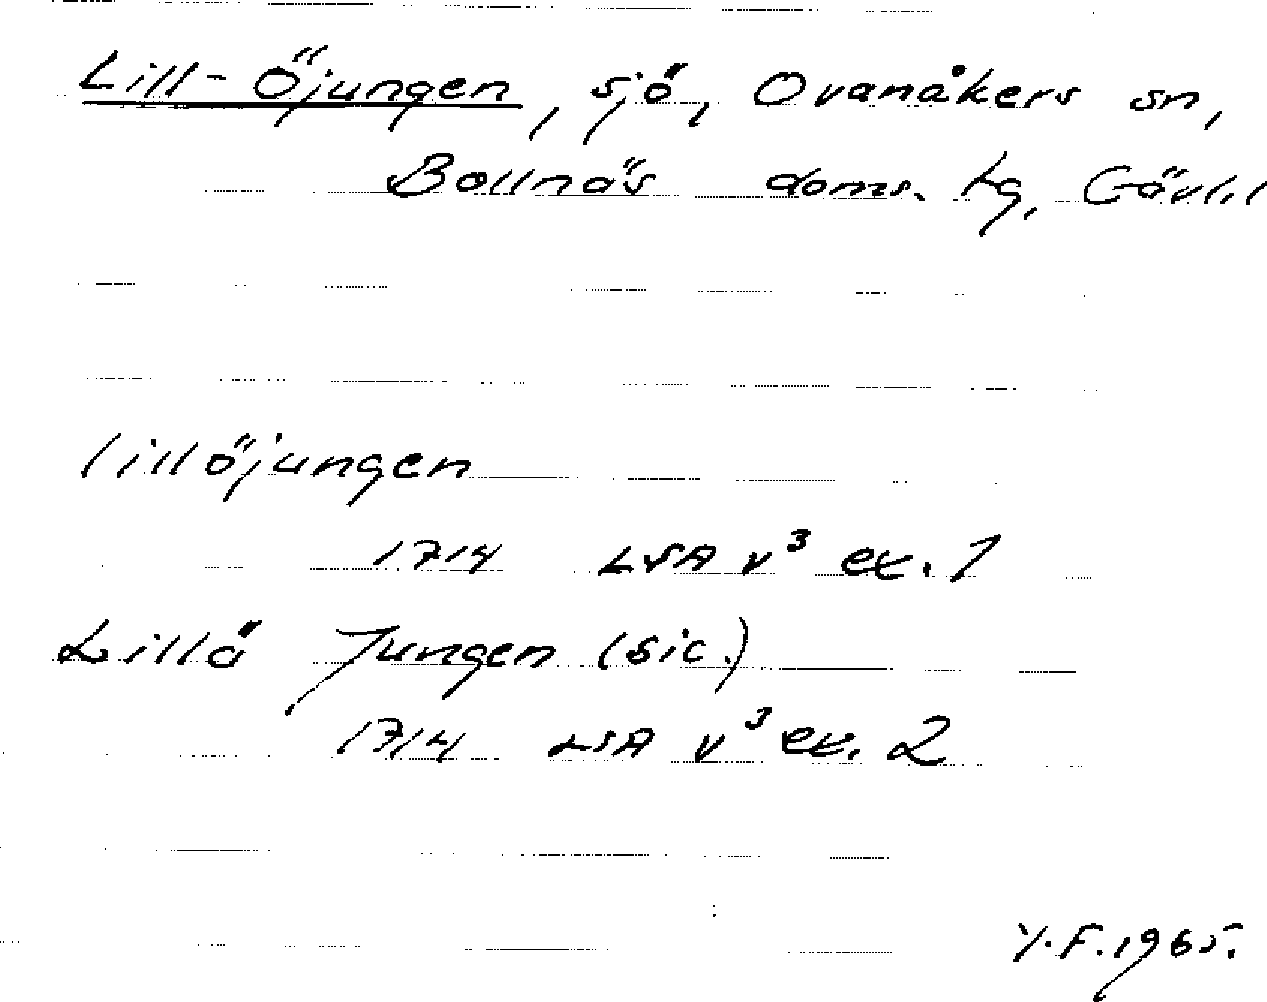 Lill-Öjungen, sjö, Ovanåkers sn,
Bollnäs doms. tg, Gävl.l
lillöjungen
1714 LSA v³ ex. 1
Lillä Jungen (sic.)
1714 LSA v³ ex. 2
Y.F. 1965.